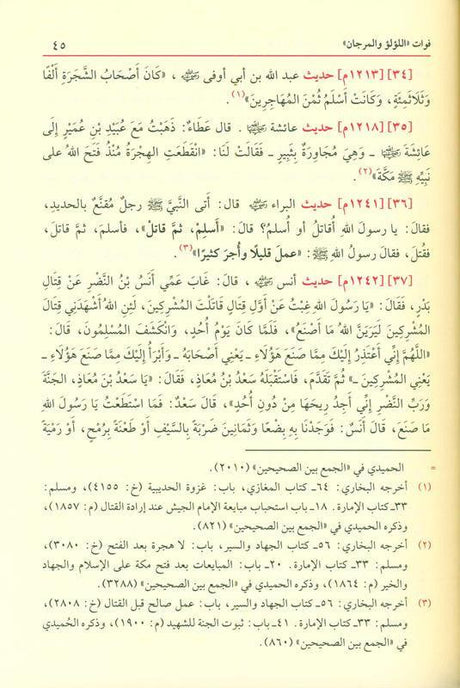 فوات «اللؤلؤ والمرجان» ٤٥
[٣٤] [١٢١٣م] حديث عبد الله بن أبي أوفى ﵁، «كَانَ أَصْحَابُ الشَّجَرَةِ أَلْفًا
وَثَلَاثَمِئَةٍ، وَكَانَتْ أَسْلَمُ ثُمْنَ المُهَاجِرِينَ»(١).
[٣٥] [١٢١٨م] حديث عائشة ﵂. قال عَطَاءٌ: ذَهَبْتُ مَعَ عُبَيْدِ بْنِ عُمَيْرٍ إِلَى
عَائِشَةَ ﵂ ـ وَهِيَ مُجَاوِرَةٌ بِثَبِيرٍ ـ فَقَالَتْ لَنَا: «انْقَطَعَتِ الهِجْرَةُ مُنْذُ فَتَحَ اللهُ عَلَى
نَبِيِّهِ ﷺ مَكَّةَ»(٢).
[٣٦] [١٢٤١م] حديث البراء ﵁ قال: أَتى النَّبيَّ ﷺ رجلٌ مُقنَّعٌ بالحديدِ،
فقالَ: يا رسولَ اللهِ أُقاتلُ أو أُسلمُ؟ قالَ: «أَسلِمْ، ثمَّ قاتلْ»، فأسلمَ، ثمَّ قاتلَ،
فقُتلَ، فقالَ رسولُ اللهِ ﷺ: «عملَ قليلًا وأُجرَ كثيرًا»(٣).
[٣٧] [١٢٤٢م] حديث أنس ﵁، قالَ: غَابَ عَمِّي أَنَسُ بْنُ النَّضْرِ عَنْ قِتَالِ
بَدْرٍ، فَقَالَ: «يَا رَسُولَ اللهِ غِبْتُ عَنْ أَوَّلِ قِتَالٍ قَاتَلْتَ المُشْرِكِينَ، لَئِنِ اللهُ أَشْهَدَنِي قِتَالَ
المُشْرِكِينَ لَيَرَيَنَّ اللهُ مَا أَصْنَعُ»، فَلَمَّا كَانَ يَوْمُ أُحُدٍ، وَانْكَشَفَ المُسْلِمُونَ، قَالَ:
«اللَّهُمَّ إِنِّي أَعْتَذِرُ إِلَيْكَ مِمَّا صَنَعَ هَؤُلَاءِ ـ يَعْنِي أَصْحَابَهُ ـ وَأَبْرَأُ إِلَيْكَ مِمَّا صَنَعَ هَؤُلَاءِ ـ
يَعْنِي المُشْرِكِينَ ـ» ثُمَّ تَقَدَّمَ، فَاسْتَقْبَلَهُ سَعْدُ بْنُ مُعَاذٍ، فَقَالَ: «يَا سَعْدُ بْنَ مُعَاذٍ، الجَنَّةَ
وَرَبِّ النَّضْرِ إِنِّي أَجِدُ رِيحَهَا مِنْ دُونِ أُحُدٍ»، قَالَ سَعْدٌ: فَمَا اسْتَطَعْتُ يَا رَسُولَ اللهِ
مَا صَنَعَ، قَالَ أَنَسٌ: فَوَجَدْنَا بِهِ بِضْعًا وَثَمَانِينَ ضَرْبَةً بِالسَّيْفِ أَوْ طَعْنَةً بِرُمْحٍ، أَوْ رَمْيَةً
= الحميدي في «الجمع بين الصحيحين» (٢٠١٠).
(١) أخرجه البخاري: ٦٤ـ كتاب المغازي، باب: غزوة الحديبية (خ: ٤١٥٥)، ومسلم:
٣٣ـ كتاب الإمارة. ١٨ـ باب استحباب مبايعة الإمام الجيش عند إرادة القتال (م: ١٨٥٧)،
وذكره الحميدي في «الجمع بين الصحيحين» (٨٢١).
(٢) أخرجه البخاري: ٥٦ـ كتاب الجهاد والسير، باب: لا هجرة بعد الفتح (خ: ٣٠٨٠)،
ومسلم: ٣٣ـ كتاب الإمارة. ٢٠ـ باب: المبايعات بعد فتح مكة على الإسلام والجهاد
والخير (م: ١٨٦٤)، وذكره الحميدي في «الجمع بين الصحيحين» (٣٢٨٨).
(٣) أخرجه البخاري: ٥٦ـ كتاب الجهاد والسير، باب: عمل صالح قبل القتال (خ: ٢٨٠٨)،
ومسلم: ٣٣ـ كتاب الإمارة. ٤١ـ باب: ثبوت الجنة للشهيد (م: ١٩٠٠)، وذكره الحُميدي
في «الجمع بين الصحيحين» (٨٦٠).